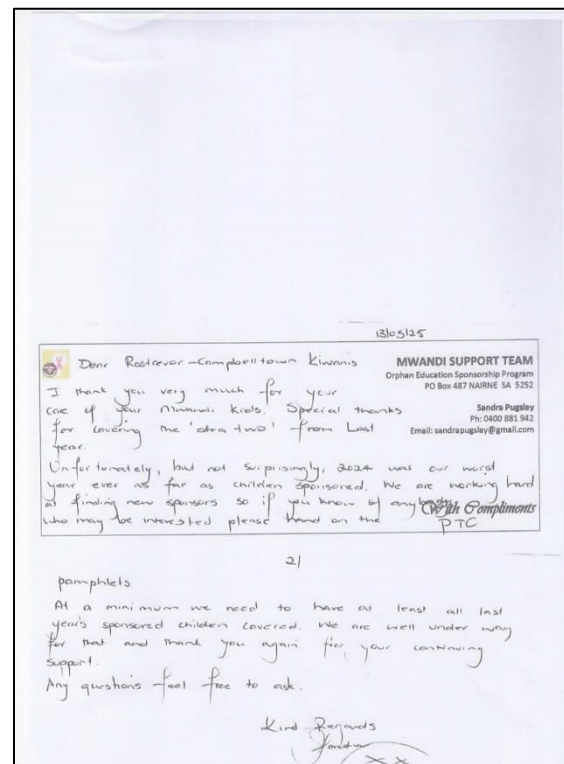 13/03/25
Dear Rostrevor-Campbelltown Kiwanis
MWANDI SUPPORT TEAM
Orphan Education Sponsorship Program
PO Box 487 NAIRNE SA 5252
Sandra Pugsley
Ph: 0400 881 942
Email: sandrapugsley@gmail.com
I thank you very much for your
care of your Mwandi Kids. Special thanks
for covering the 'extra two' from Last
year.
Unfortunately, but not surprisingly, 2024 was our worst
year ever as far as children sponsored. We are working hard
at finding new sponsors so if you know of anybody
who may be interested please hand on the
With Compliments
PTO
2/
pamphlets
At a minimum we need to have at least all last
year's sponsored children covered. We are well under way
for that and thank you again for your continuing
support.
Any questions feel free to ask.
Kind Regards
Sandra
XX